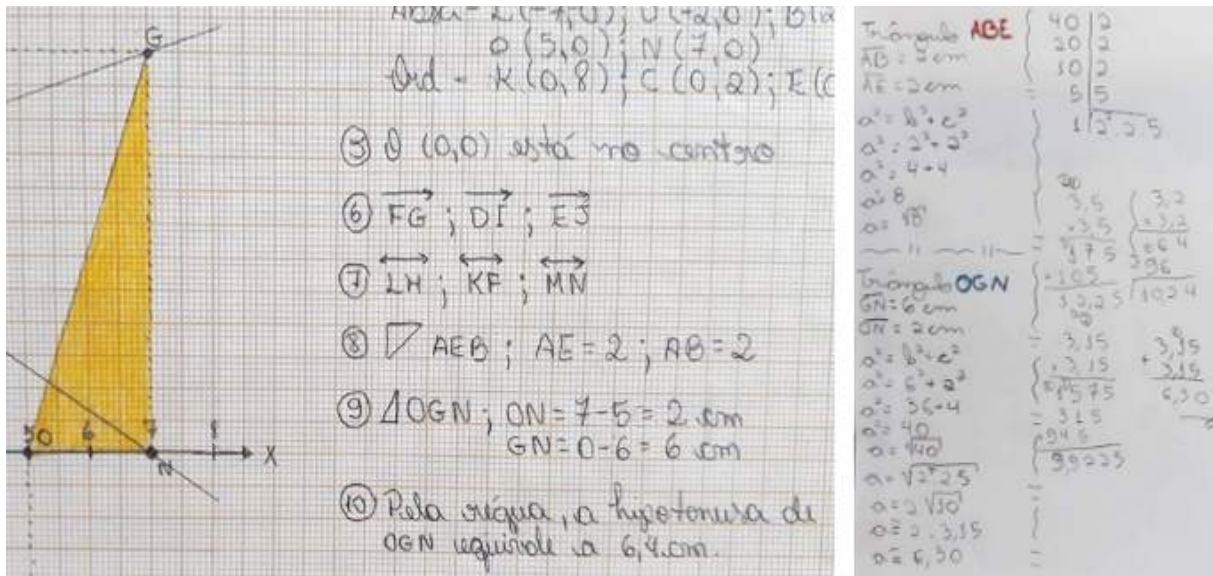 G
5 0 6 7 8 X
N
O (5,0); N (7,0)
Ord - K (0,8); C (0,2); E (0
⑤ O (0,0) está no centro
⑥ FG ; DI ; EJ
⑦ LH ; KF ; MN
⑧ AEB ; AE = 2 ; AB = 2
⑨ △OGN ; ON = 7-5 = 2 cm
GN = 0-6 = 6 cm
⑩ Pela régua, a hipotenusa de
OGN equivale a 6,4 cm.
Triângulo ABE
AB = 2 cm
AE = 2 cm
a² = b² + c²
a² = 2² + 2²
a² = 4 + 4
a² = 8
a = √8
Triângulo OGN
GN = 6 cm
ON = 2 cm
a² = b² + c²
a² = 6² + 2²
a² = 36 + 4
a² = 40
a = √40
a = √2² 2 5
a = 2√10
a ≅ 2 . 3,15
a ≅ 6,30
40 | 2
20 | 2
10 | 2
5 | 5
1 | 2² . 2 . 5
3,5
. 3,5
175
+ 105
12,25
3,2
. 3,2
064
+ 96
1024
3,15
. 3,15
1575
315
945
99225
3,15
+ 3,15
6,30